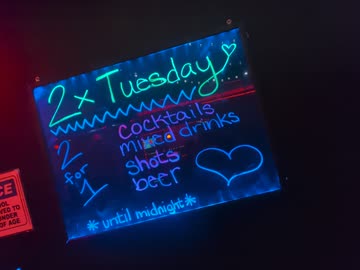 2 x Tuesday
2 for 1
cocktails
mixed drinks
shots
beer
* until midnight *